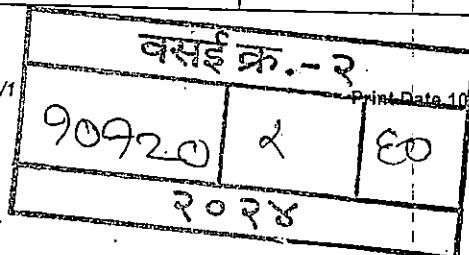 वसई क्र.-२
/1 Print Date 10
१०१२० २ ६०
२०२४